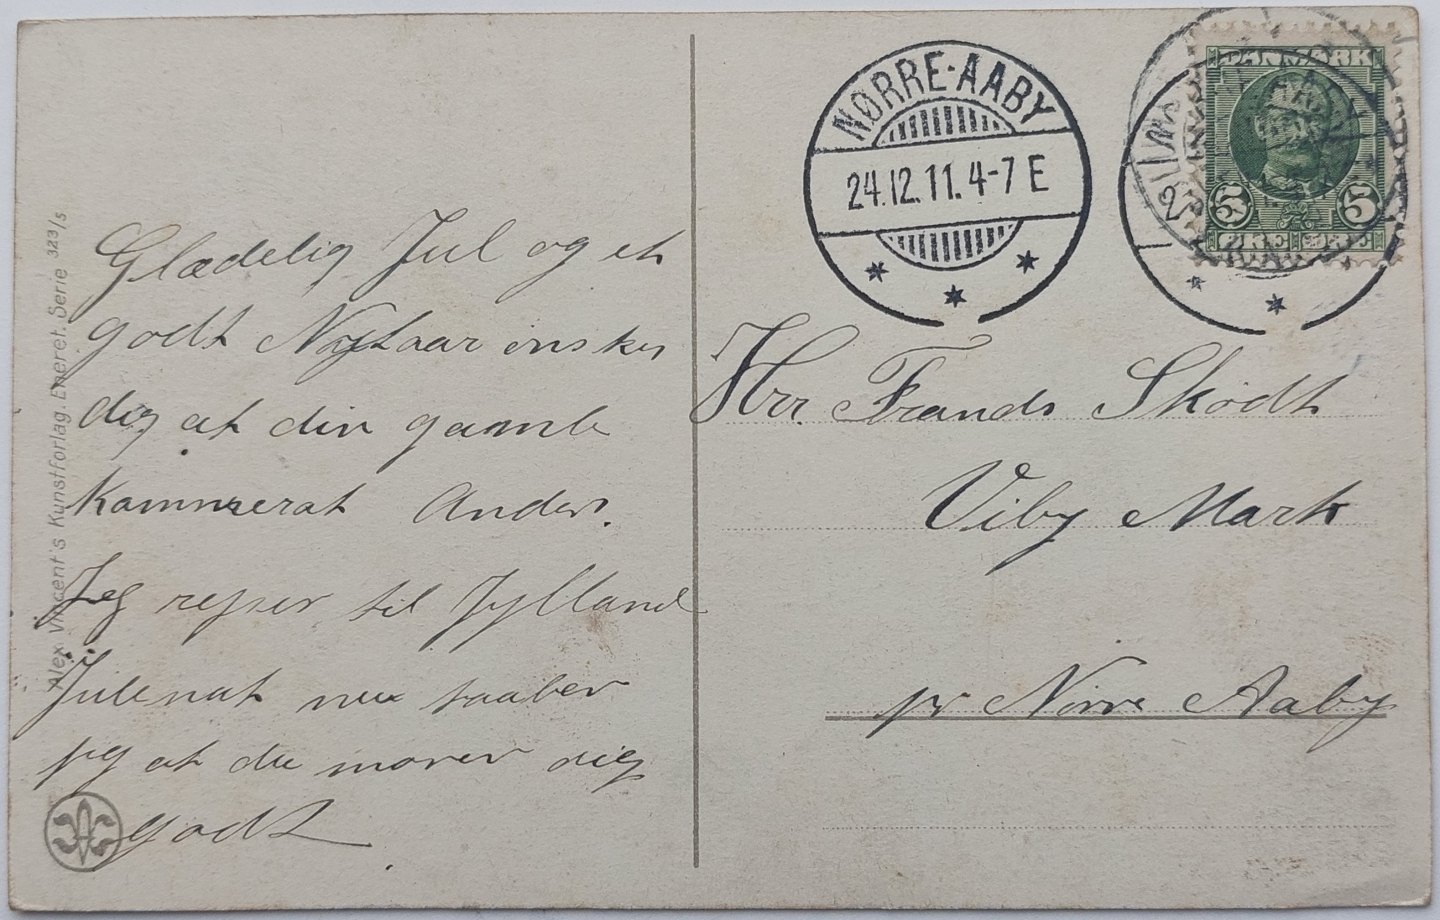 Glædelig Jul og et
godt Nytaar ønsker
dig at din gamle
Kammerat Anders.
Jeg rejser til Jylland
Julenat nu haaber
jeg at du morer dig
godt
Alex Vincent's Kunstforlag. Eneret. Serie 323/5
NØRRE-AABY
24.12.11. 4-7 E
DANMARK
5 5
ØRE ØRE
Hrr. Frands Skødt
Viby Mark
pr Nörre Aaby